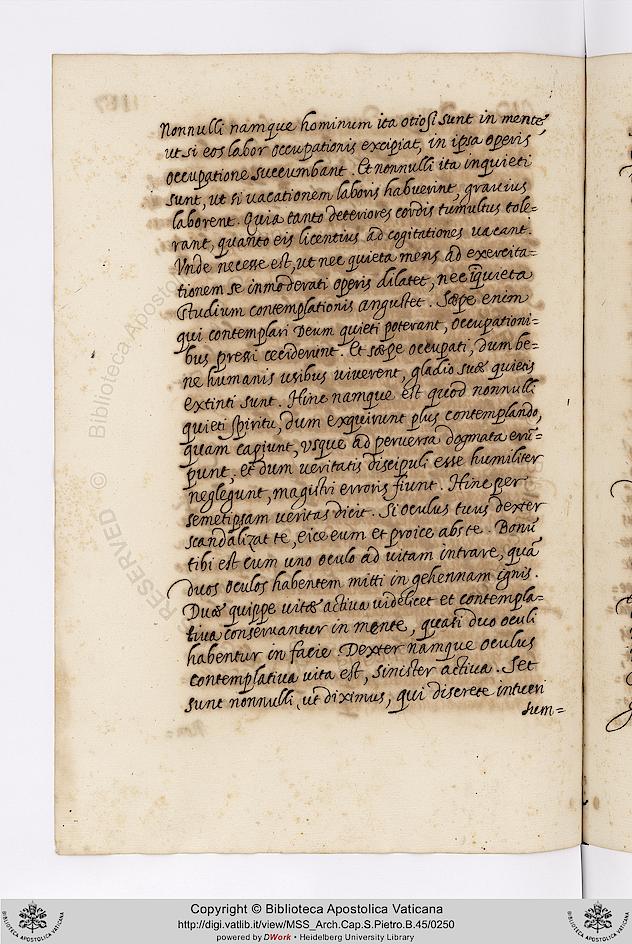 Nonnulli namque hominum ita otiosi sunt in mente,
ut si eos labor occupationis excipiat, in ipsa operis
occupatione succumbant. Et nonnulli ita inquieti
sunt, ut si vacationem laboris habuerint, gravius
laborent. Quia tanto deteriores cordis tumultus tole=
rant, quanto eis licentius ad cogitationes vacant.
Unde necesse est, ut nec quieta mens ad exercita=
tionem se inmoderati operis dilatet, nec iquieta
studium contemplationis angustet. Sæpe enim
qui contemplari Deum quieti poterant, occupationi=
bus pressi ceciderunt. Et sæpe occupati, dum be=
ne humanis usibus viverent, gladio suæ quietis
extinti sunt. Hinc namque est quod nonnulli
quieti spiritu, dum exquirunt plus contemplando,
quam capiunt, usque ad perversa dogmata erū=
punt, et dum veritatis discipuli esse humiliter
neglegunt, magistri erroris fiunt. Hinc per
semetipsam veritas dicit. Si oculus tuus dexter
scandalizat te, eice eum et proice abs te. Bonū
tibi est cum uno oculo ad vitam intrare, quā
duos oculos habentem mitti in gehennam ignis.
Duæ quippe vitæ activa videlicet et contempla=
tiva conservantur in mente, quasi duo oculi
habentur in facie. Dexter namque oculus
contemplativa vita est, sinister activa. Set
sunt nonnulli, ut diximus, qui discrete intueri
sum=
RESERVED © Biblioteca Aposto
Copyright © Biblioteca Apostolica Vaticana
http://digi.vatlib.it/view/MSS_Arch.Cap.S.Pietro.B.45/0250
powered by DWork • Heidelberg University Library